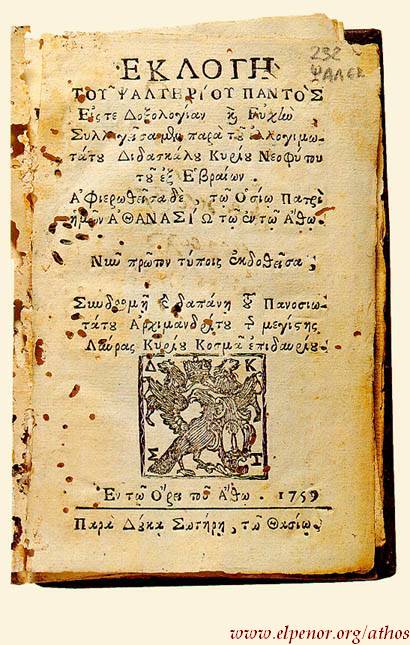 232
ΨΑΛΕΚ
ΕΚΛΟΓΗ
ΤΟΥ ΨΑΛΤΗΡΙΟΥ ΠΑΝΤΟΣ
Εἴς τε Δοξολογίαν καὶ Εὐχὴν
Συλλεγεῖσα μὲν παρὰ τοῦ ἐλλογιμω-
τάτου Διδασκάλου Κυρίου Νεοφύτου
τοῦ ἐξ Εβραίων .
Αφιερωθεῖσα δὲ , τῷ Οσίῳ Πατρὶ
ἡμῶν ΑΘΑΝΑΣΙΩ τῷ ἐν τῷ Αθῳ .
Νῦν πρῶτον τύποις ἐκδοθεῖσα ,
Συνδρομῇ καὶ δαπάνῃ τοῦ Πανοσιω-
τάτου Αρχιμανδρίτου τῆς μεγίστης
Λαύρας Κυρίου Κοσμᾶ ἐπιδαυρίου .
Δ Κ
Σ Τ
Εν τῷ Ορει τοῦ Αθω . 1759
Παρὰ Δούκα Σωτήρη , τῷ Θασίῳ .
www.elpenor.org/athos